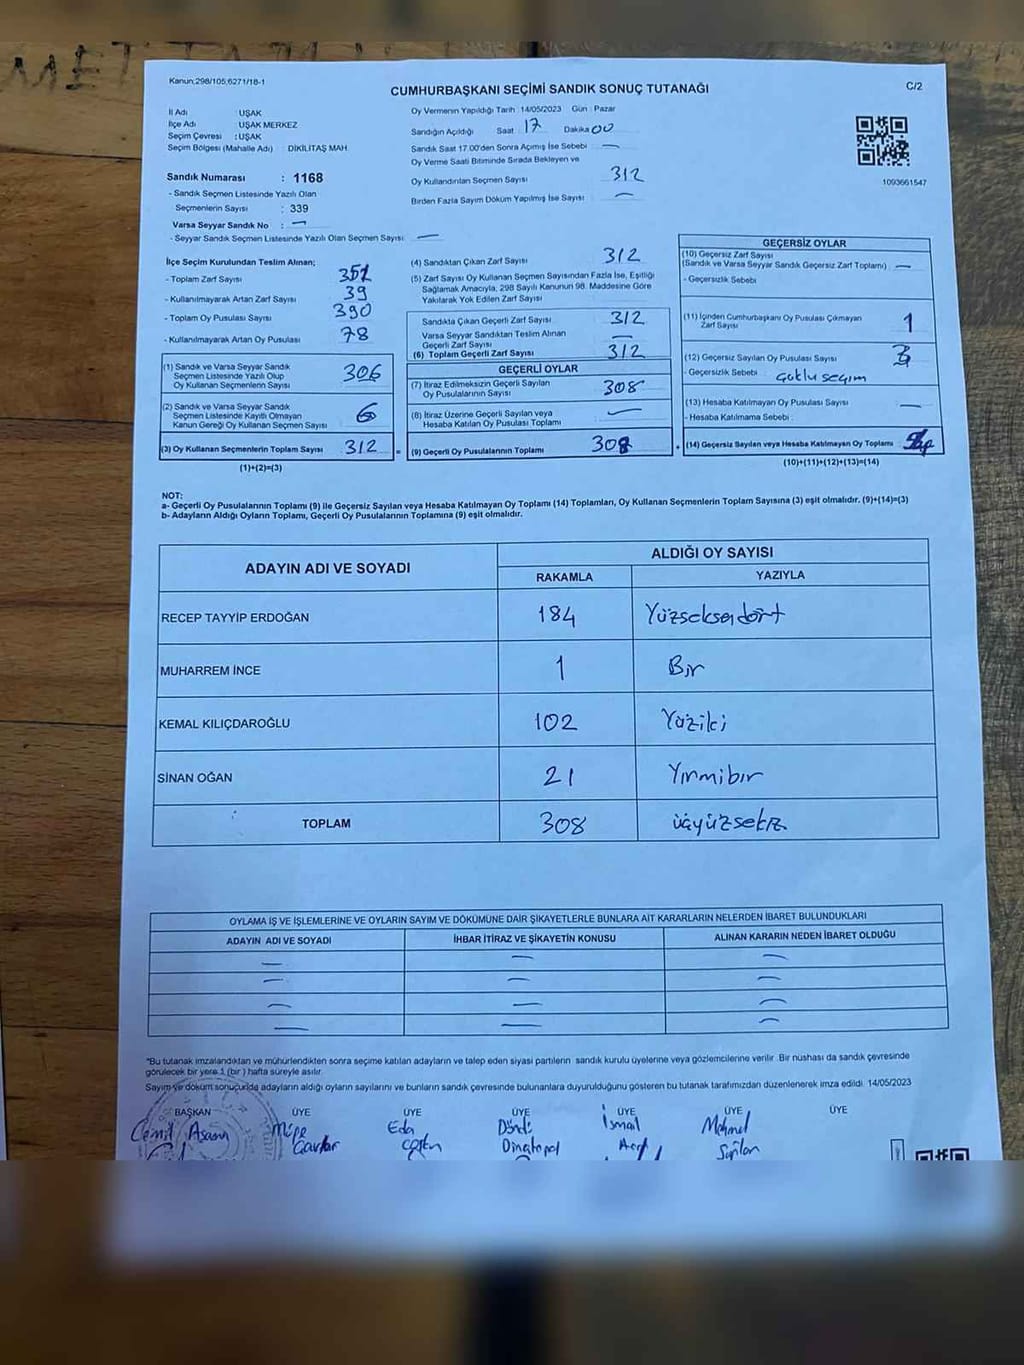 Kanun:298/105,6271/18-1
CUMHURBAŞKANI SEÇİMİ SANDIK SONUÇ TUTANAĞI
C/2
İl Adı : UŞAK
İlçe Adı : UŞAK MERKEZ
Seçim Çevresi : UŞAK
Seçim Bölgesi (Mahalle Adı) : DİKİLİTAŞ MAH
Sandık Numarası : 1168
- Sandık Seçmen Listesinde Yazılı Olan
Seçmenlerin Sayısı : 339
Varsa Seyyar Sandık No : —
- Seyyar Sandık Seçmen Listesinde Yazılı Olan Seçmen Sayısı : —
Oy Vermenin Yapıldığı Tarih :14/05/2023 Gün : Pazar
Sandığın Açıldığı Saat : 17 Dakika 00
Sandık Saat 17.00'den Sonra Açımış İse Sebebi —
Oy Verme Saati Bitiminde Sırada Bekleyen ve
Oy Kullandırılan Seçmen Sayısı 312
Birden Fazla Sayım Döküm Yapılmış İse Sayısı —
1093661547
İlçe Seçim Kurulundan Teslim Alınan;
- Toplam Zarf Sayısı 351
- Kullanılmayarak Artan Zarf Sayısı 39
- Toplam Oy Pusulası Sayısı 390
- Kullanılmayarak Artan Oy Pusulası 78
(1) Sandık ve Varsa Seyyar Sandık
Seçmen Listesinde Yazılı Olup
Oy Kullanan Seçmenlerin Sayısı 306
(2) Sandık ve Varsa Seyyar Sandık
Seçmen Listesinde Kayıtlı Olmayan
Kanun Gereği Oy Kullanan Seçmen Sayısı 6
(3) Oy Kullanan Seçmenlerin Toplam Sayısı 312
(1)+(2)=(3)
(4) Sandıktan Çıkan Zarf Sayısı 312
(5) Zarf Sayısı Oy Kullanan Seçmen Sayısından Fazla İse, Eşitliği
Sağlamak Amacıyla, 298 Sayılı Kanunun 98. Maddesine Göre
Yakılarak Yok Edilen Zarf Sayısı
Sandıkta Çıkan Geçerli Zarf Sayısı 312
Varsa Seyyar Sandıktan Teslim Alınan
Geçerli Zarf Sayısı —
(6) Toplam Geçerli Zarf Sayısı 312
GEÇERLİ OYLAR
(7) İtiraz Edilmeksizin Geçerli Sayılan
Oy Pusulalarının Sayısı 308
(8) İtiraz Üzerine Geçerli Sayılan veya
Hesaba Katılan Oy Pusulası Toplamı —
= (9) Geçerli Oy Pusulalarının Toplamı 308
GEÇERSİZ OYLAR
(10) Geçersiz Zarf Sayısı
(Sandık ve Varsa Seyyar Sandık Geçersiz Zarf Toplamı) : —
- Geçersizlik Sebebi :
(11) İçinden Cumhurbaşkanı Oy Pusulası Çıkmayan
Zarf Sayısı 1
(12) Geçersiz Sayılan Oy Pusulası Sayısı 3
- Geçersizlik Sebebi : çoklu seçim
(13) Hesaba Katılmayan Oy Pusulası Sayısı —
- Hesaba Katılmama Sebebi :
(14) Geçersiz Sayılan veya Hesaba Katılmayan Oy Toplamı
(10)+(11)+(12)+(13)=(14)
NOT:
a- Geçerli Oy Pusulalarının Toplamı (9) ile Geçersiz Sayılan veya Hesaba Katılmayan Oy Toplamı (14) Toplamları, Oy Kullanan Seçmenlerin Toplam Sayısına (3) eşit olmalıdır. (9)+(14)=(3)
b- Adayların Aldığı Oyların Toplamı, Geçerli Oy Pusulalarının Toplamına (9) eşit olmalıdır.
ADAYIN ADI VE SOYADI ALDIĞI OY SAYISI
RAKAMLA YAZIYLA
RECEP TAYYİP ERDOĞAN 184 Yüzseksendört
MUHARREM İNCE 1 Bir
KEMAL KILIÇDAROĞLU 102 Yüziki
SİNAN OĞAN 21 Yirmibir
TOPLAM 308 üçyüzsekiz
OYLAMA İŞ VE İŞLEMLERİNE VE OYLARIN SAYIM VE DÖKÜMÜNE DAİR ŞİKAYETLERLE BUNLARA AİT KARARLARIN NELERDEN İBARET BULUNDUKLARI
ADAYIN ADI VE SOYADI İHBAR İTİRAZ VE ŞİKAYETİN KONUSU ALINAN KARARIN NEDEN İBARET OLDUĞU
— — —
— — —
— — —
— — —
*Bu tutanak imzalandıktan ve mühürlendikten sonra seçime katılan adayların ve talep eden siyasi partilerin sandık kurulu üyelerine veya gözlemcilerine verilir. Bir nüshası da sandık çevresinde
görülecek bir yere 1 (bir) hafta süreyle asılır.
Sayım ve döküm sonucunda adayların aldığı oyların sayılarını ve bunların sandık çevresinde bulunanlara duyurulduğunu gösteren bu tutanak tarafımızdan düzenlenerek imza edildi. 14/05/2023
BAŞKAN ÜYE ÜYE ÜYE ÜYE ÜYE ÜYE
Cemil Eda Döndü İsmail Mehmet